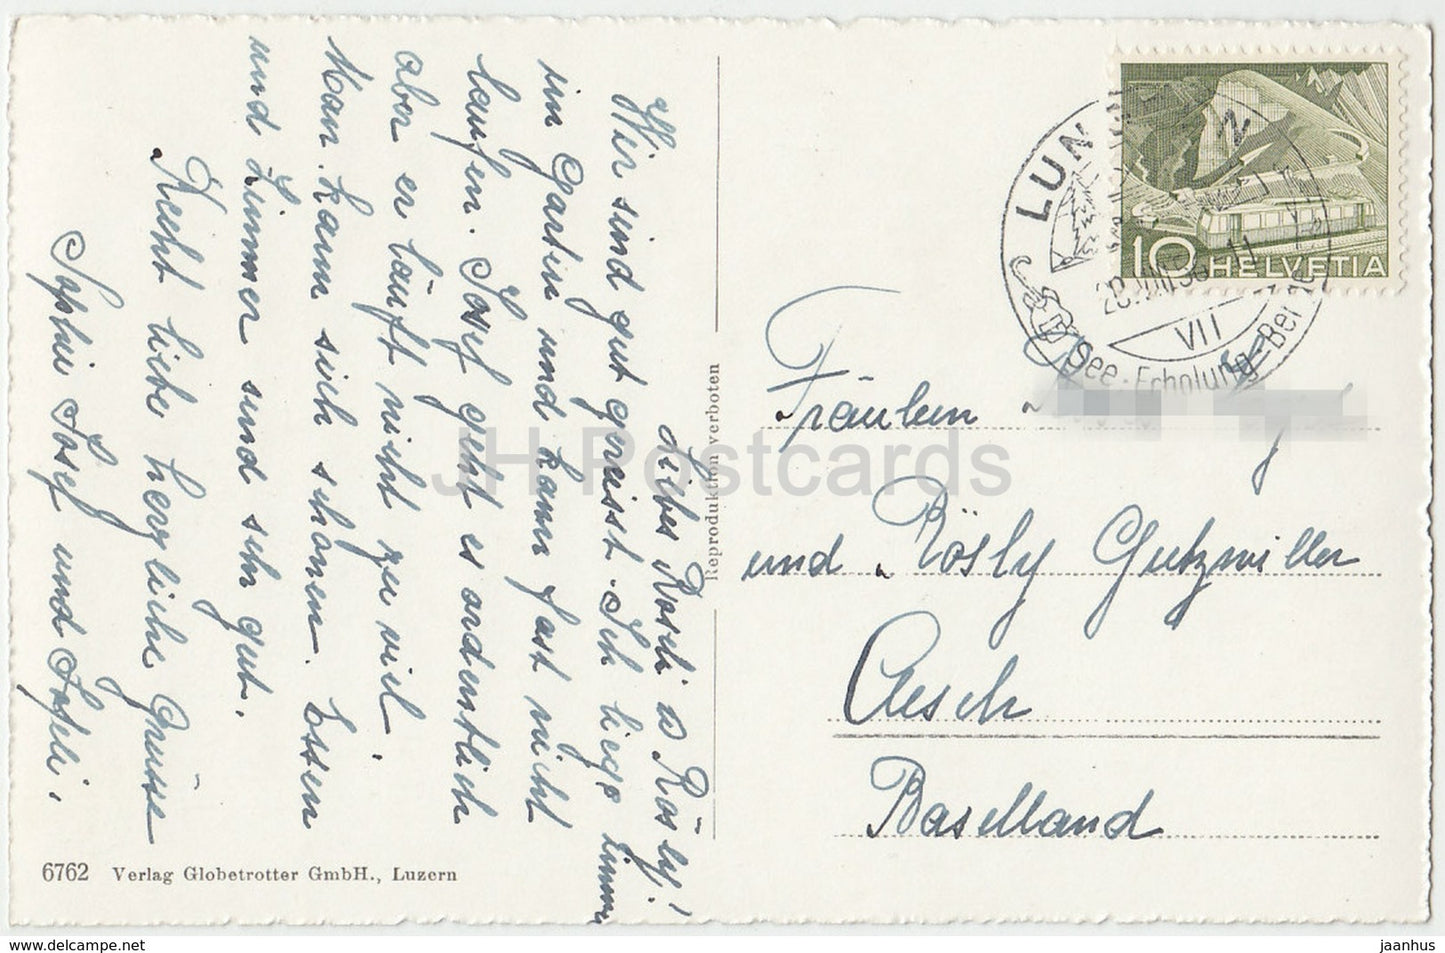 Liebes Rösli u Rösly!
Wir sind gut gereist. Ich liege immer
im Garten und kann fast nicht
laufen. Josef geht es ordentlich
aber er läuft nicht zu viel.
Man kann sich schonen. Essen
und Zimmer sind sehr gut.
Recht liebe herzliche Grüsse
Sophie Josef und
6762 Verlag Globetrotter GmbH., Luzern
Reproduktion verboten
HELVETIA
10
LUN
28.VIII.56-11
VII
See-Erholung-Berge
Fräulein
und Rösly Gutzwiller
Aesch
Baselland
JH Postcards
www.delcampe.net
jaanhus